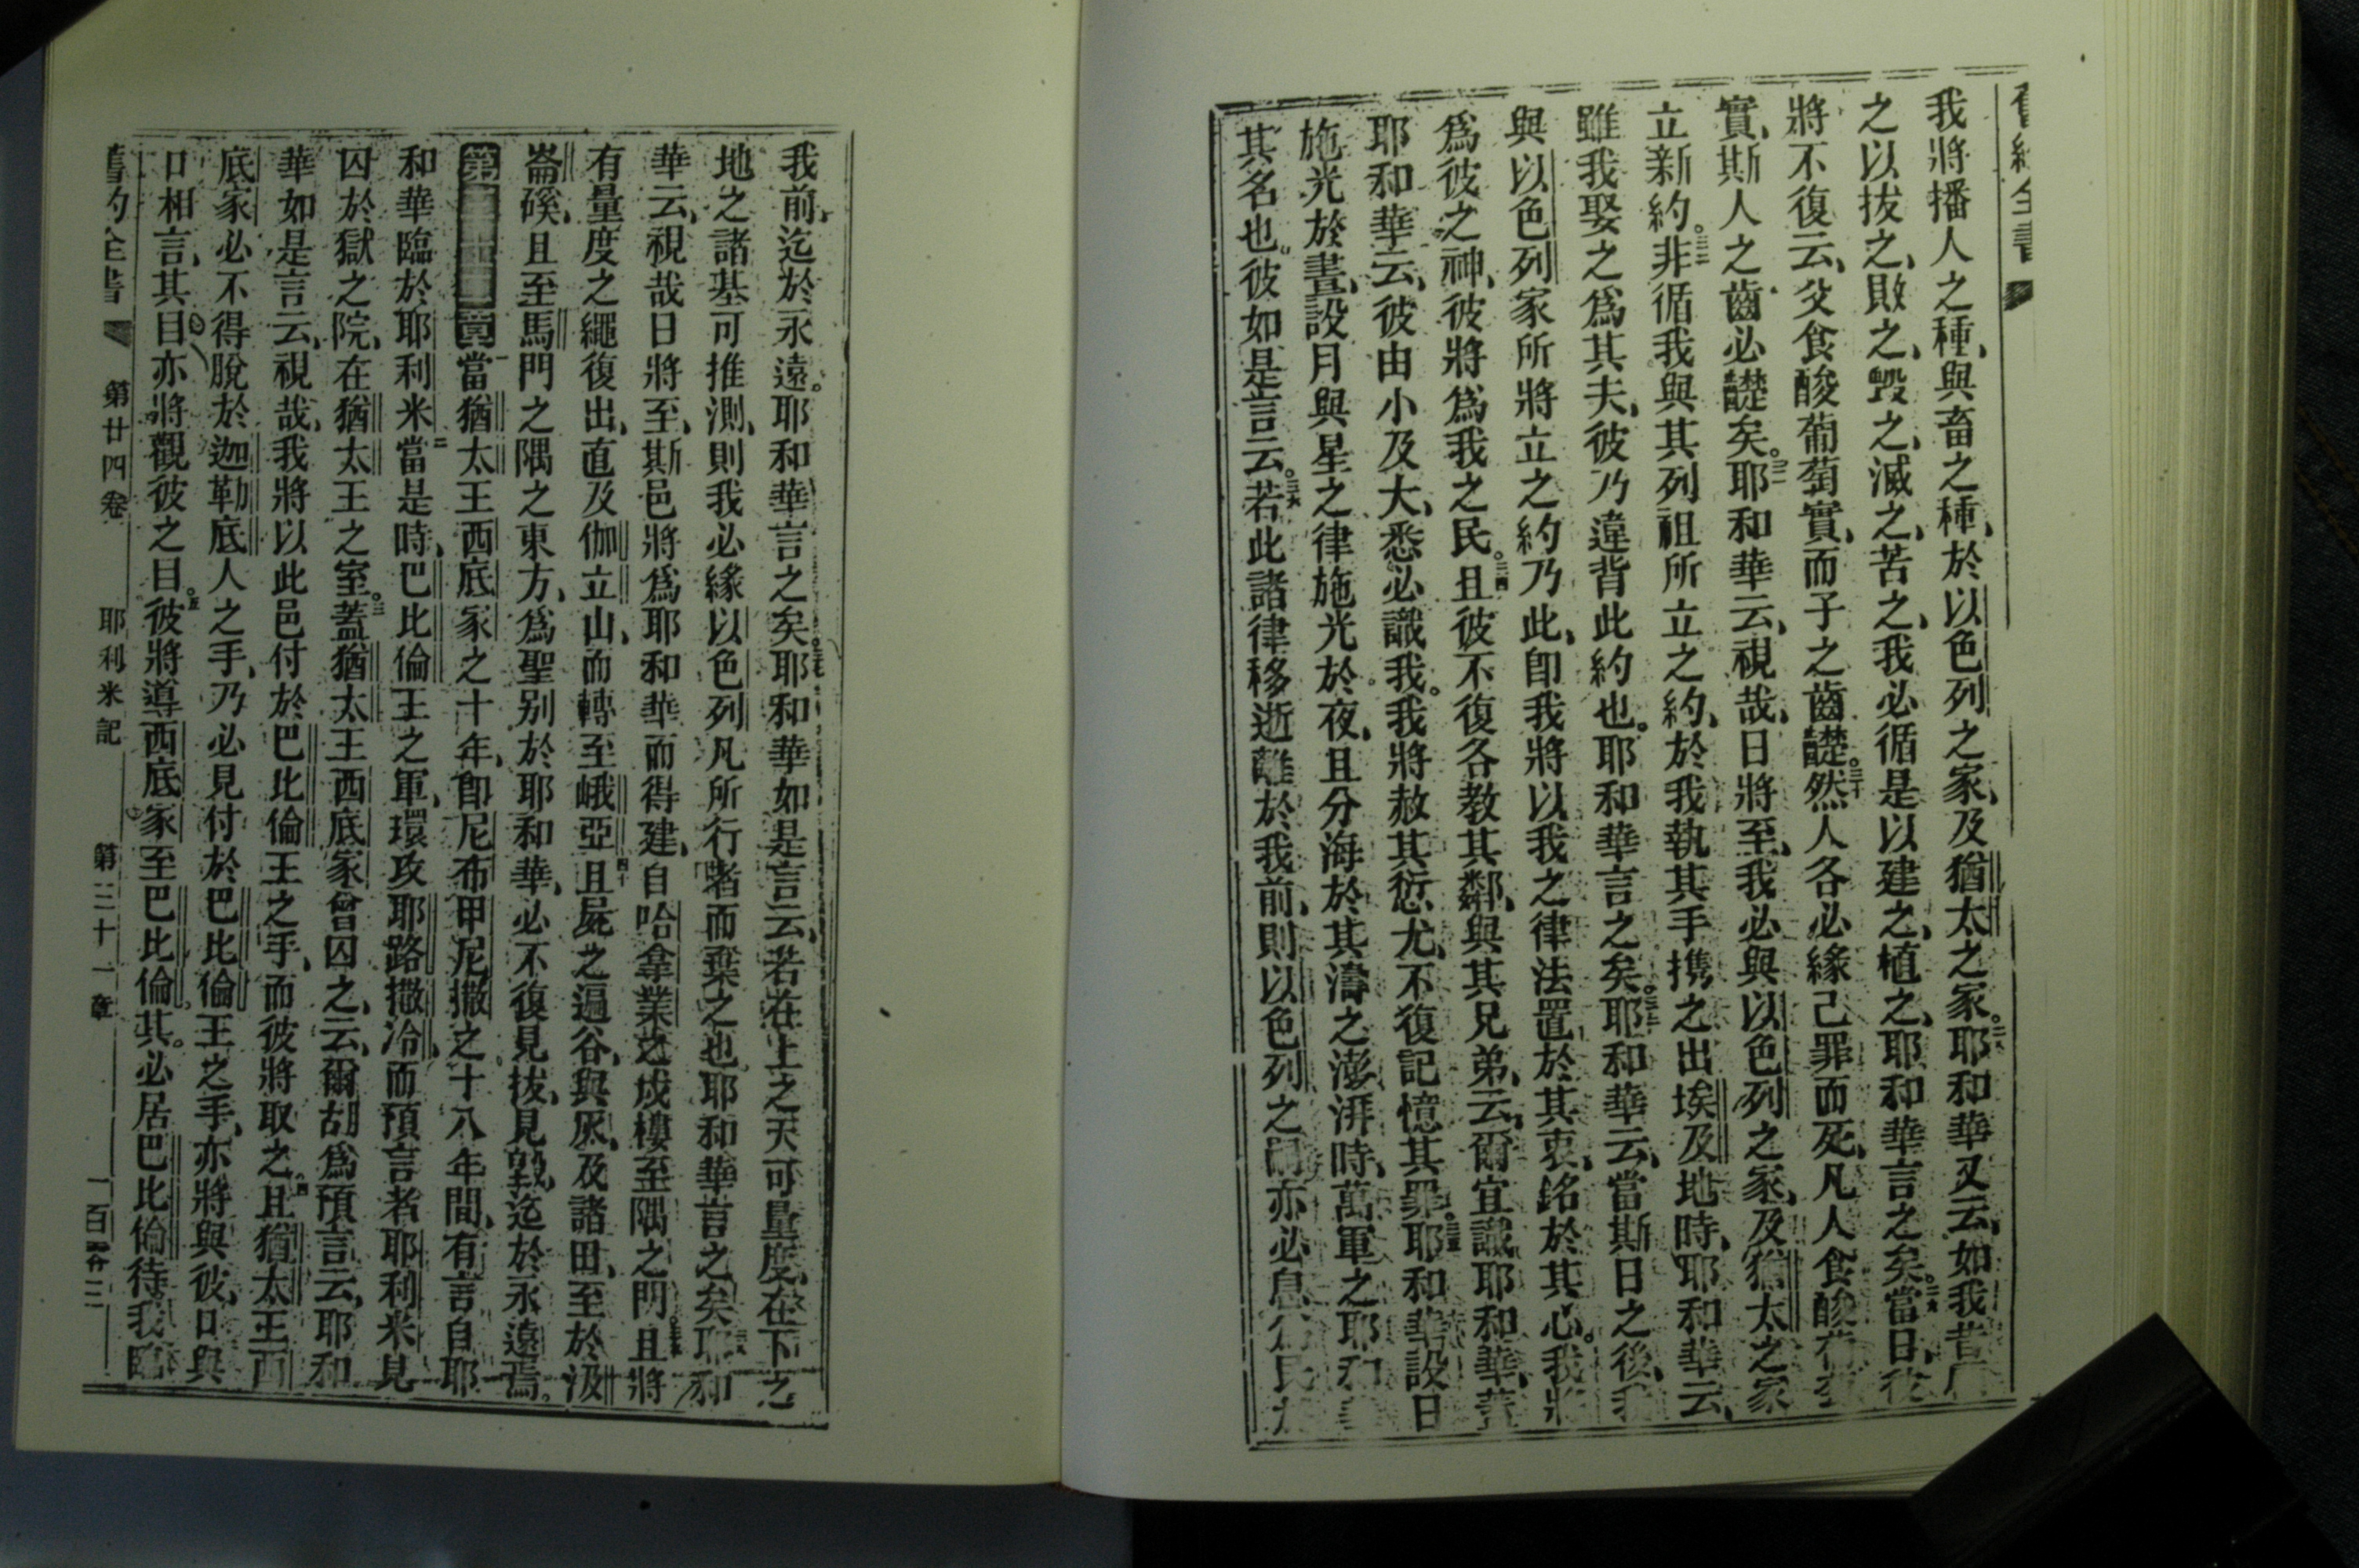 舊約全書
我將播人之種、與畜之種、於以色列之家、及猶太之家。耶和華又云、如我昔
之以拔之、敗之、毀之、滅之、苦之、我必循是以建之、植之、耶和華言之矣。當日、
將不復云、父食酸葡萄實、而子之齒齼。三十然人各必緣己罪而死、凡人食酸
實、斯人之齒必齼矣。耶和華云、視哉、日將至、我必與以色列之家、及猶太之家
立新約。非循我與其列祖所立之約、於我執其手携之出埃及地時、耶和華云、
雖我娶之爲其夫、彼乃違背此約也。耶和華言之矣。耶和華云、當斯日之後、我
與以色列家所將立之約乃此、卽我將以我之律法置於其衷、銘於其心。我將
爲彼之神、彼將爲我之民。三四且彼不復各教其鄰、與其兄弟、云、爾宜識耶和華、
耶和華云、彼由小及大、悉必識我。我將赦其愆尤、不復記憶其罪。耶和華設日
施光於晝、設月與星之律施光於夜、且分海於其濤之澎湃時、萬軍之耶和
其名也。彼如是言云。若此諸律移逝離於我前、則以色列之亦必息爲民
我前、迄於永遠。耶和華言之矣。耶和華如是言云、若在上之天可量度、在下之
地之諸基可推測、則我必緣以色列凡所行者而棄之也。耶和華言之矣。耶和
華云、視哉日將至、斯邑將爲耶和華而得建、自哈拿業之戍樓至隅之門。且將
有量度之繩復出、直及伽立山、而轉至峨亞。四十且屍之遍谷、與灰、及諸田、至於汲
崙磎、且至馬門之隅之東方、爲聖别於耶和華、必不復見拔、見毀、迄於永遠焉。
當猶太王西底家之十年、卽尼布甲尼撒之十八年間、有言自耶
和華臨於耶利米。二當是時、巴比倫王之軍、環攻耶路撒冷、而預言者耶利米見
囚於獄之院、在猶太王之室。三蓋猶太王西底家曾囚之、云、爾胡爲預言云、耶和
華如是言云、視哉、我將以此邑付於巴比倫王之手、而彼將取之。四且猶太王西
底家必不得脫於迦勒底人之手、乃必見付於巴比倫王之手、亦將與彼、口與
口相言、其目亦將觀彼之目。五彼將導西底家至巴比倫。其必居巴比倫、待我臨
舊約全書 第廿四卷 耶利米記 第三十一章 一百零三